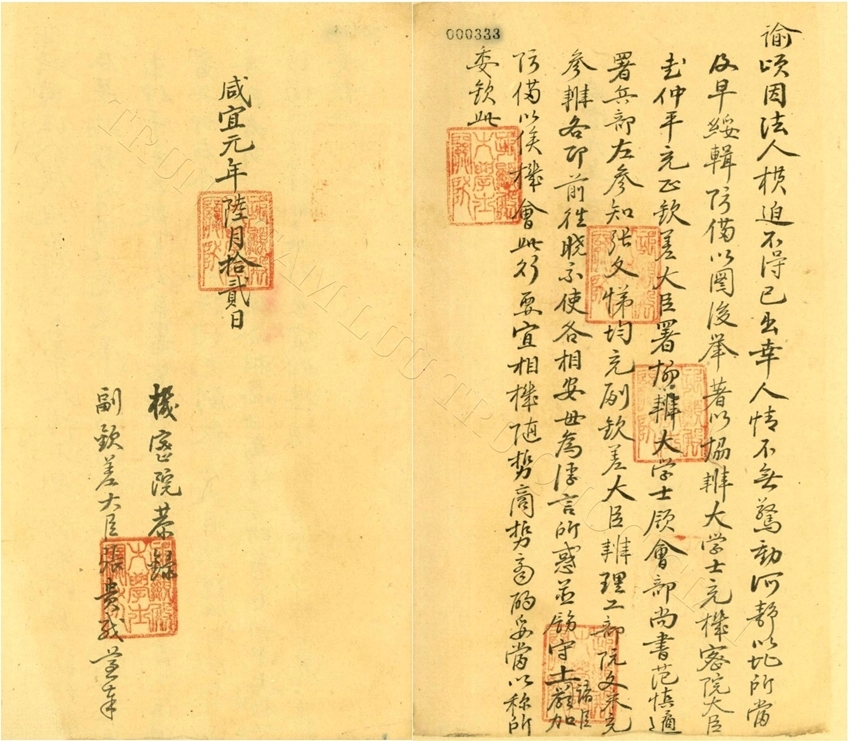 000333
諭頃因法人橫迫不得已出幸人情不無驚動河靜以北所當
及早綏輯防備以圖後舉著以協辦大學士充機密院大臣
仲平充正欽差大臣署協辦大學士領部尚書范慎遹
署兵部左參知張文悌均充副欽差大臣辦理工部阮文充
參辦各卽前往曉示使各相安毋為浮言所惑並飭守土諸臣嚴加
防備以俟機會此行要宜相機隨勢商勢商酌妥當以稱所
委欽此
咸宜元年陸月拾貳日
機密院恭錄
副欽差大臣張貴奉